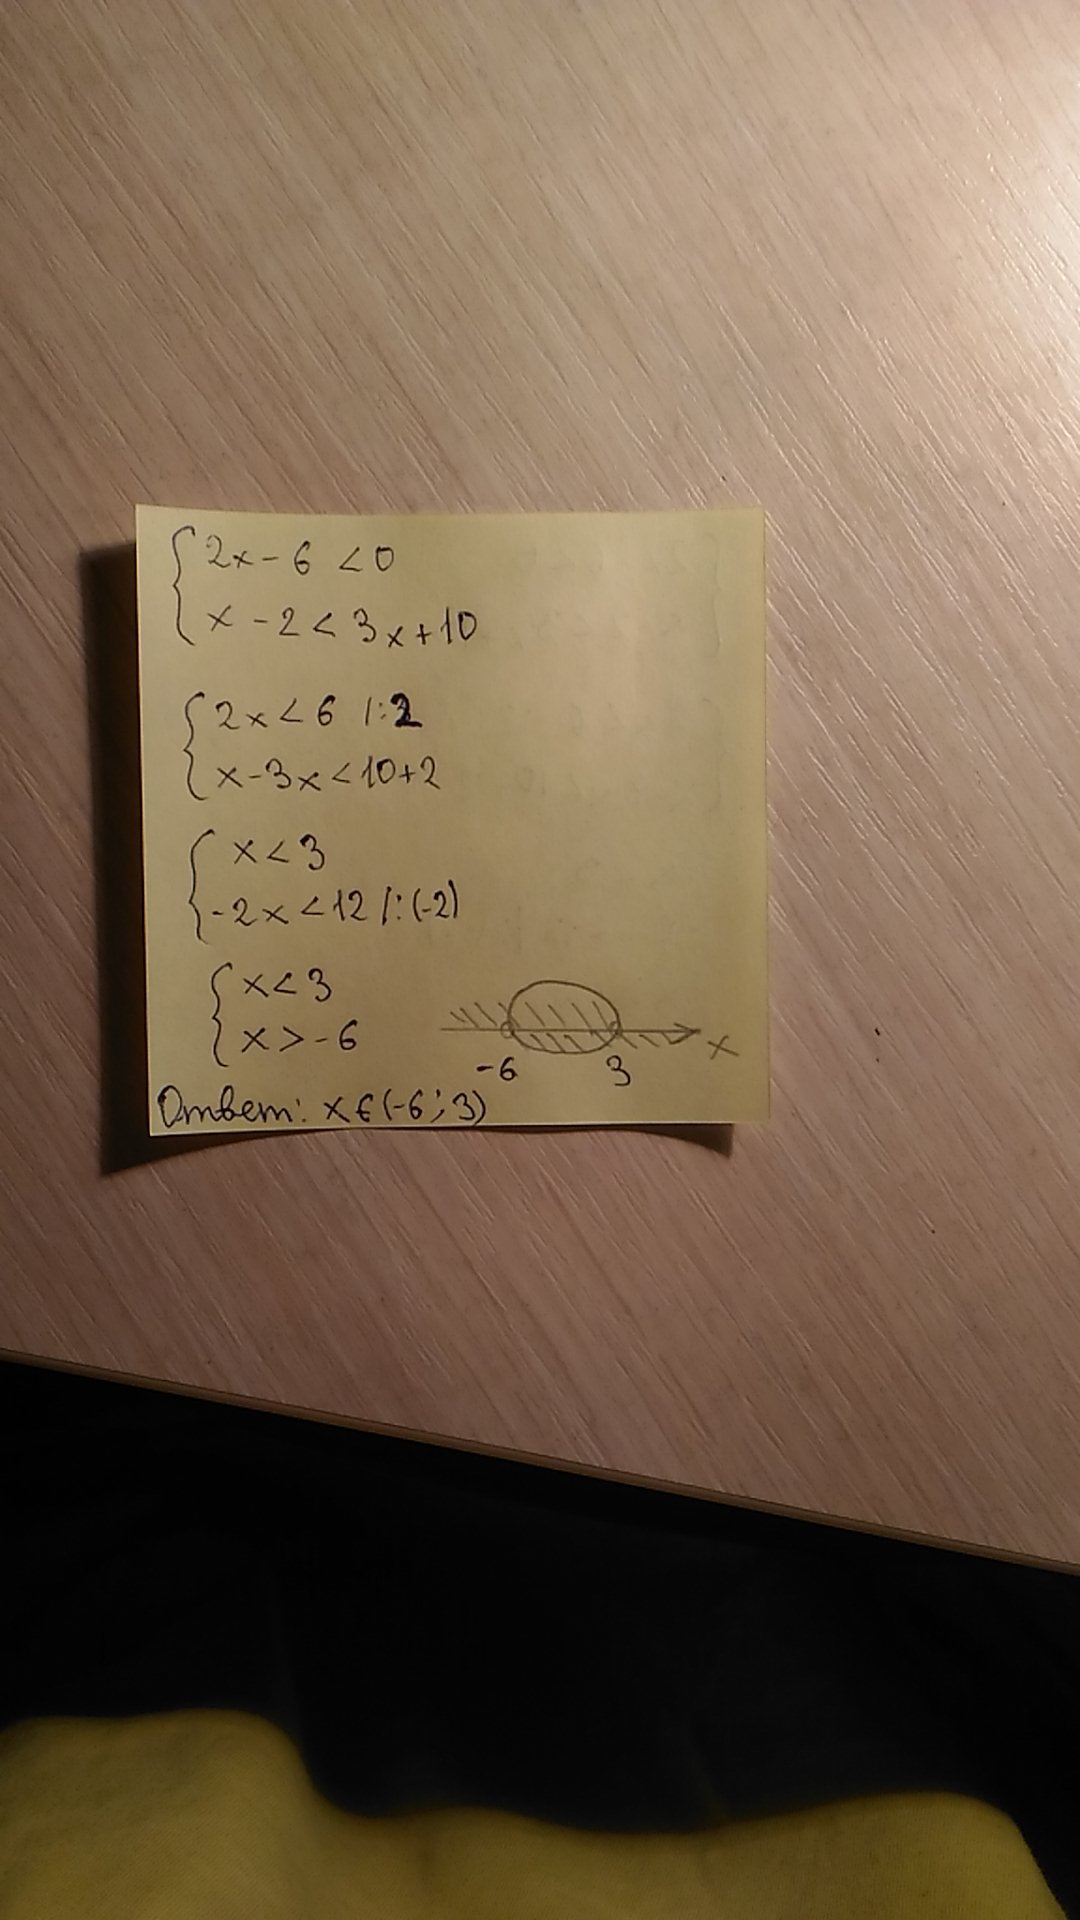 { 2x - 6 < 0
x - 2 < 3x + 10
{ 2x < 6 |:2
x - 3x < 10 + 2
{ x < 3
-2x < 12 |:(-2)
{ x < 3
x > -6
-6 3 x
Ответ: x ∈ (-6; 3)